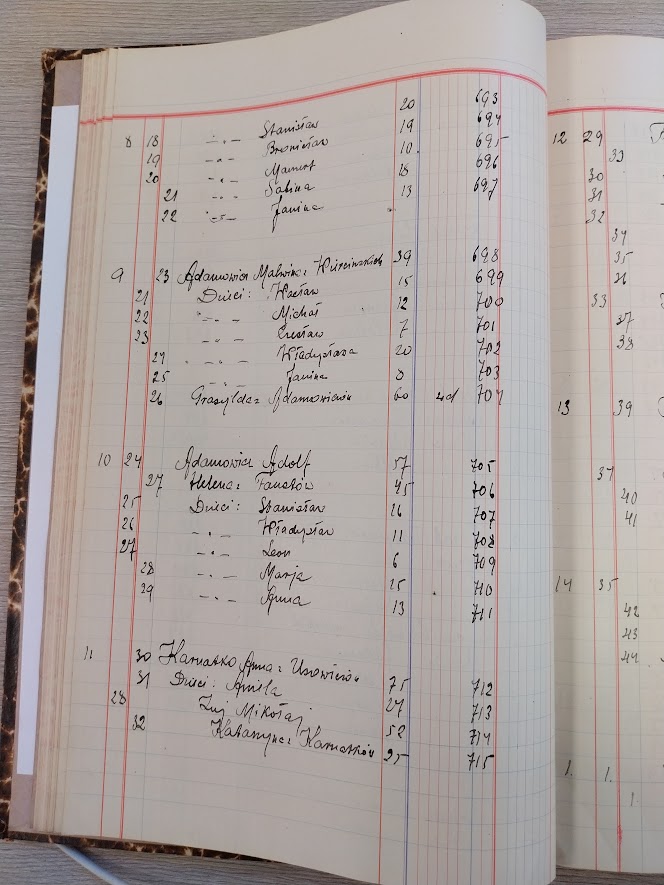 20 693
8 18 -"- Stanisław 19 694
19 -"- Bronisław 10 695
20 -"- 18 696
21 -"- Sabina 13 697
22 -"- Janina
9 23 Adamowicz Malwina z 39 698
21 Dzieci: Wacław 15 699
22 -"- Michał 12 700
23 -"- Czesław 7 701
24 -"- Władysława 20 702
25 -"- Janina 8 703
26 Gracylda z Adamowiczów 60 704
10 24 Adamowicz Adolf 57 705
27 Helena z 45 706
25 Dzieci: Stanisław 16 707
26 -"- Władysław 11 708
27 -"- Leon 6 709
28 -"- Marja 25 710
29 -"- Anna 13 711
11 30 Karnatko Anna z 75 712
31 Dzieci: Aniela 27 713
28 Mikołaj 52 714
32 Katarzyna z 25 715
12 29
33
30
31
32
34
35
36
33
37
38
13 39
37
40
41
14 35
42
43
44
1. 1.
1.